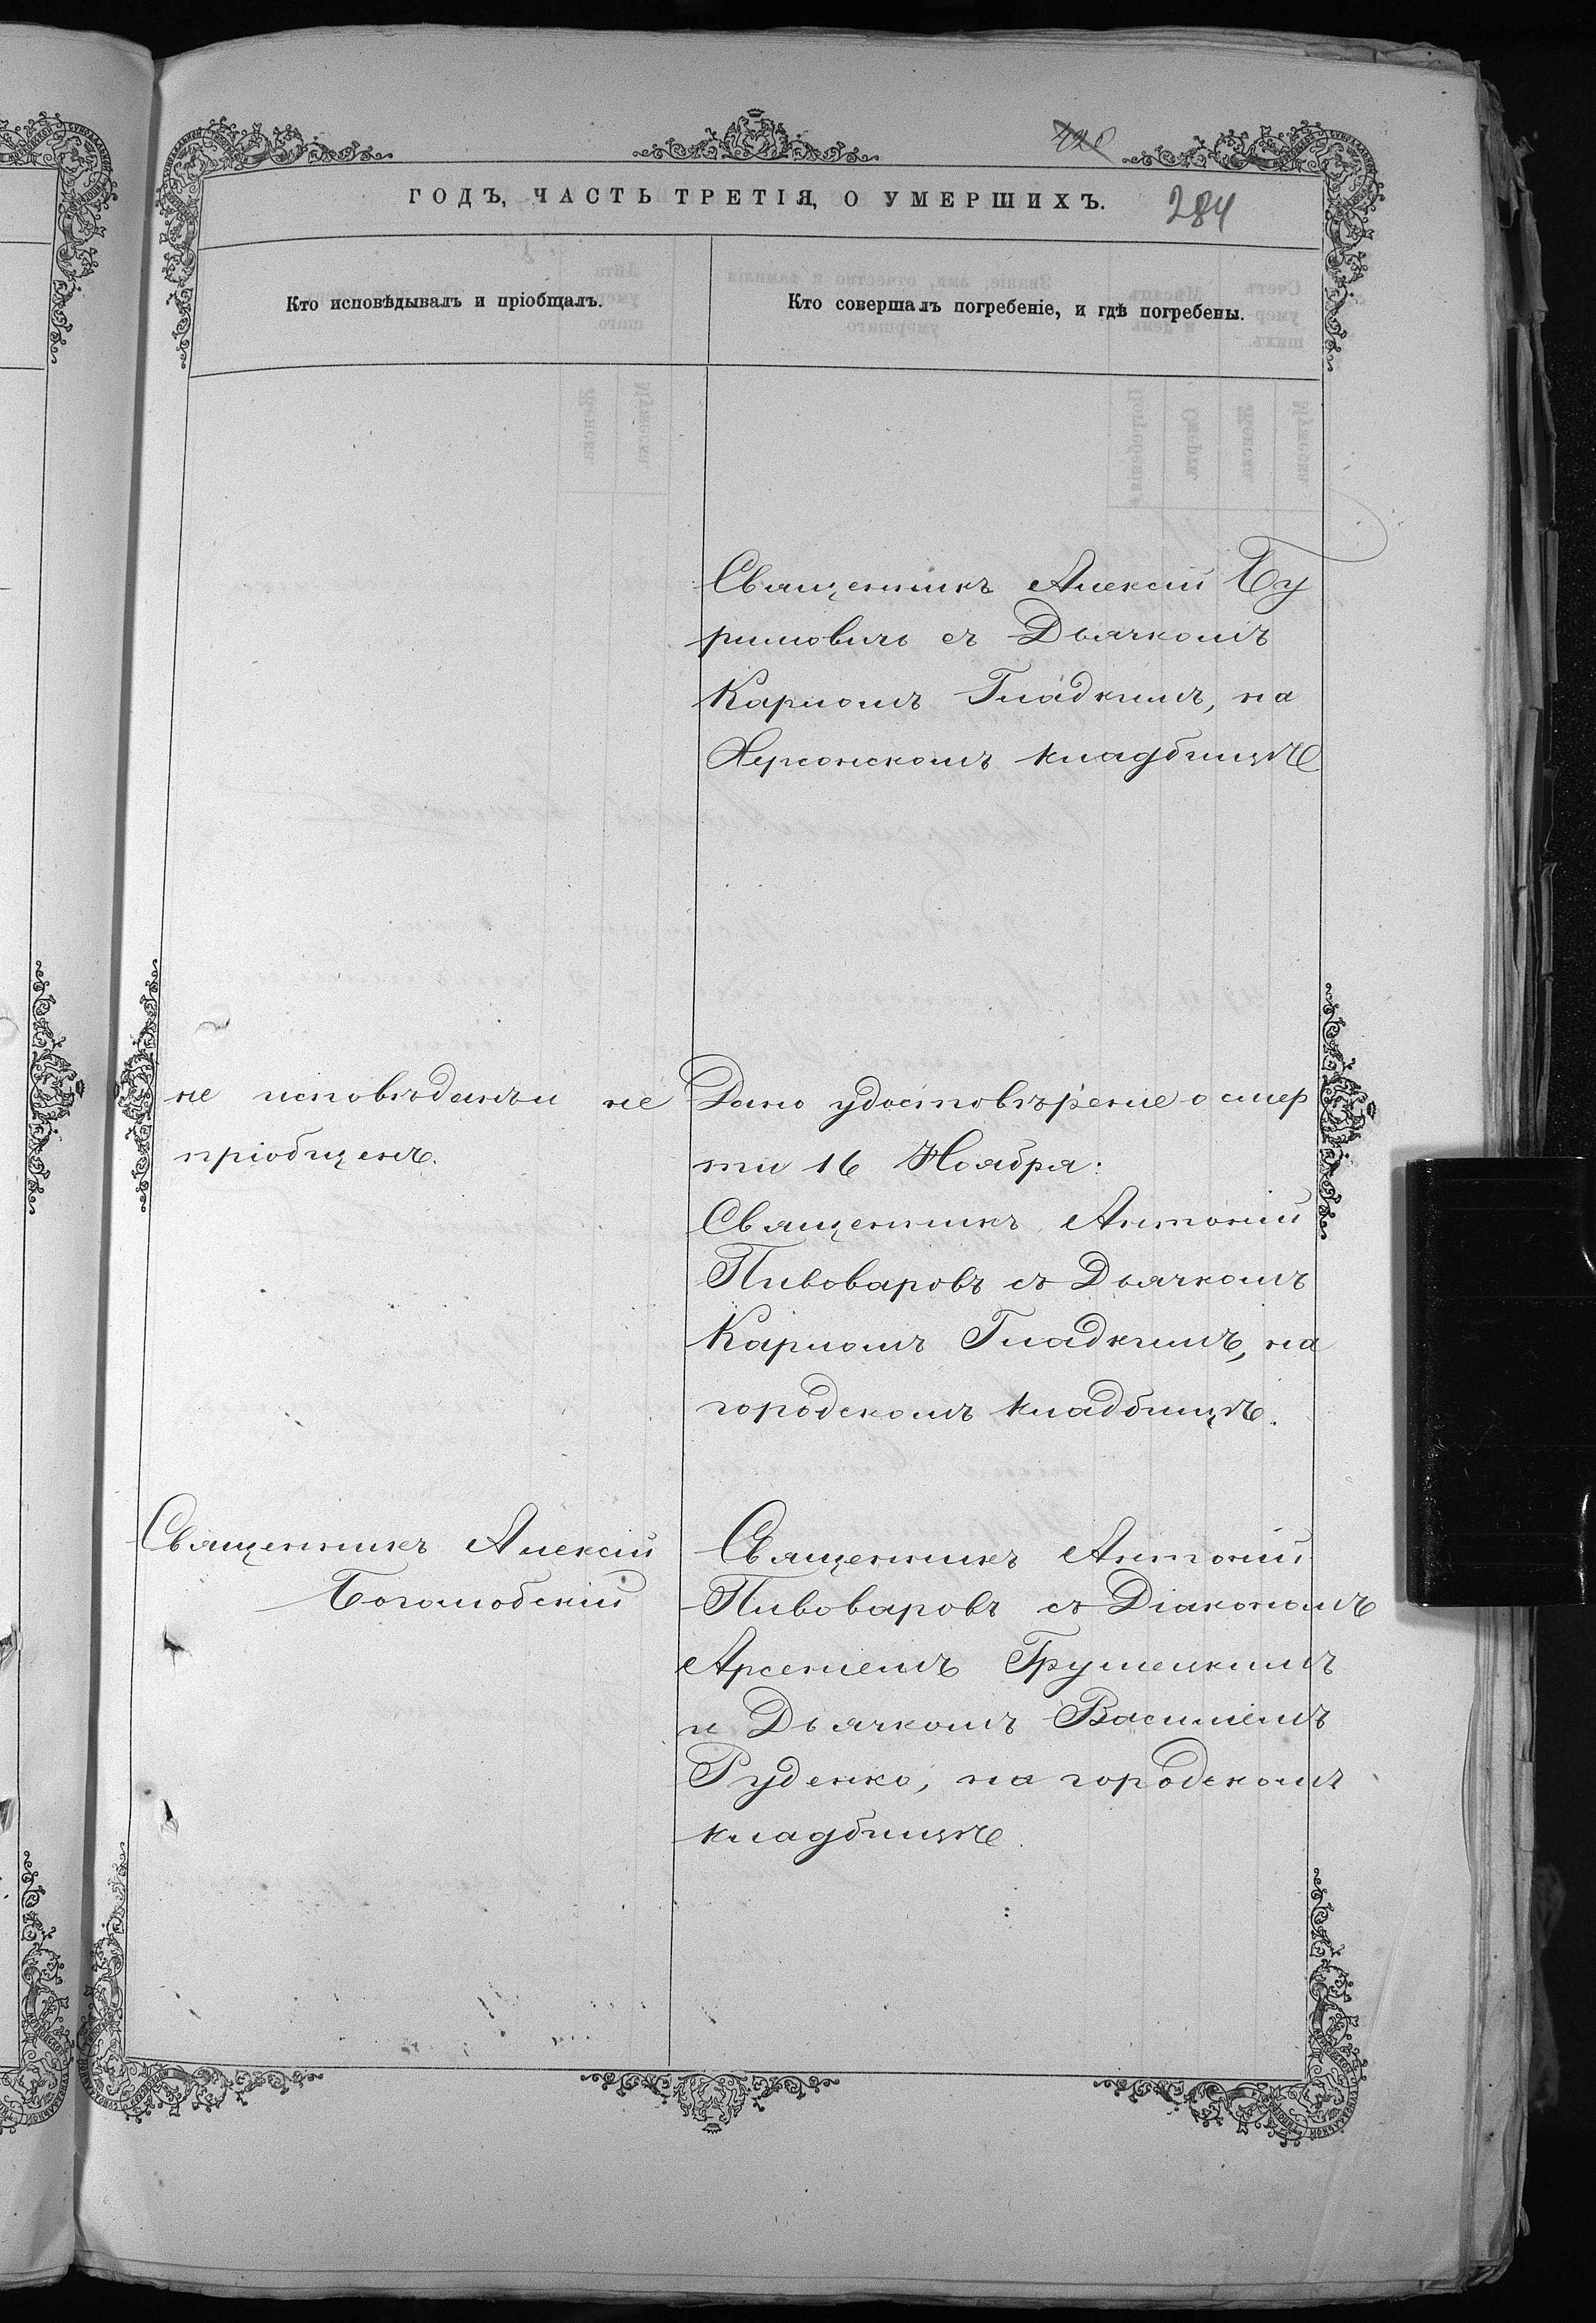 ГОДЪ, ЧАСТЬ ТРЕТІЯ, О УМЕРШИХЪ.
284
Кто исповѣдывалъ и пріобщалъ.
Кто совершалъ погребеніе, и гдѣ погребены.
Священникъ Алексій Бу
римовичъ съ Дьячкомъ
Карпомъ Гладкимъ, на
Херсонскомъ кладбищѣ
не исповѣданъ и не
пріобщенъ.
Дано удостовѣреніе о смер
ти 16 Ноября:
Священникъ Антоній
Пивоваровъ съ Дьячкомъ
Карпомъ Гладкимъ, на
городскомъ кладбищѣ.
Священникъ Алексій
Боголюбскій
Священникъ Антоній
Пивоваровъ съ Діакономъ
Арсеніемъ Грушецкимъ
и Дьячкомъ Василіемъ
Руденко, на городскомъ
кладбищѣ.